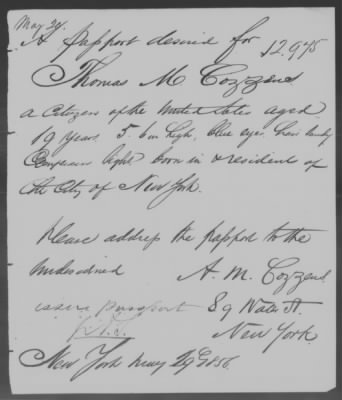 May 29.
A passport desired for 12,975
Thomas M Cozzens
a Citizen of the United States aged
19 years 5. 6 in high, blue eyes. hair
Complexion light born in & resident of
the City of New York.
Please address the passport to the
undersigned A. M. Cozzens
issue passport 89 Water St.
New York
New York May 29 1856.